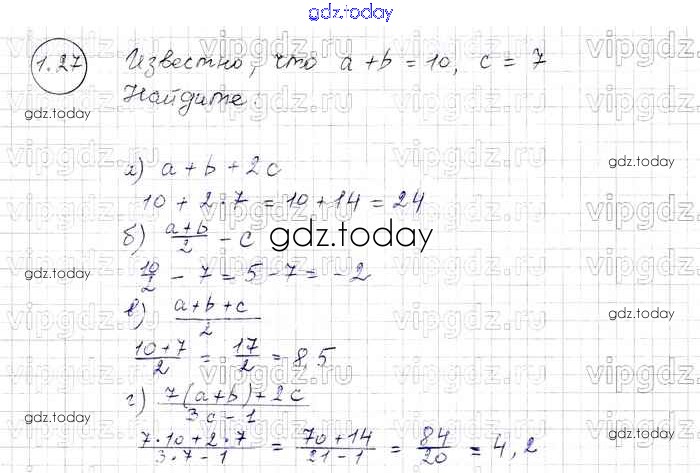 gdz.today
1.27 Известно, что a + b = 10, c = 7
Найдите:
gdz.today
vipgdz.ru
gdz.today
а) a + b + 2c
10 + 2·7 = 10 + 14 = 24
б) \frac{a+b}{2} - c
gdz.today
\frac{10}{2} - 7 = 5 - 7 = -2
в) \frac{a+b+c}{2}
\frac{10+7}{2} = \frac{17}{2} = 8,5
г) \frac{7(a+b)+2c}{3c-1}
\frac{7·10+2·7}{3·7-1} = \frac{70+14}{21-1} = \frac{84}{20} = 4,2